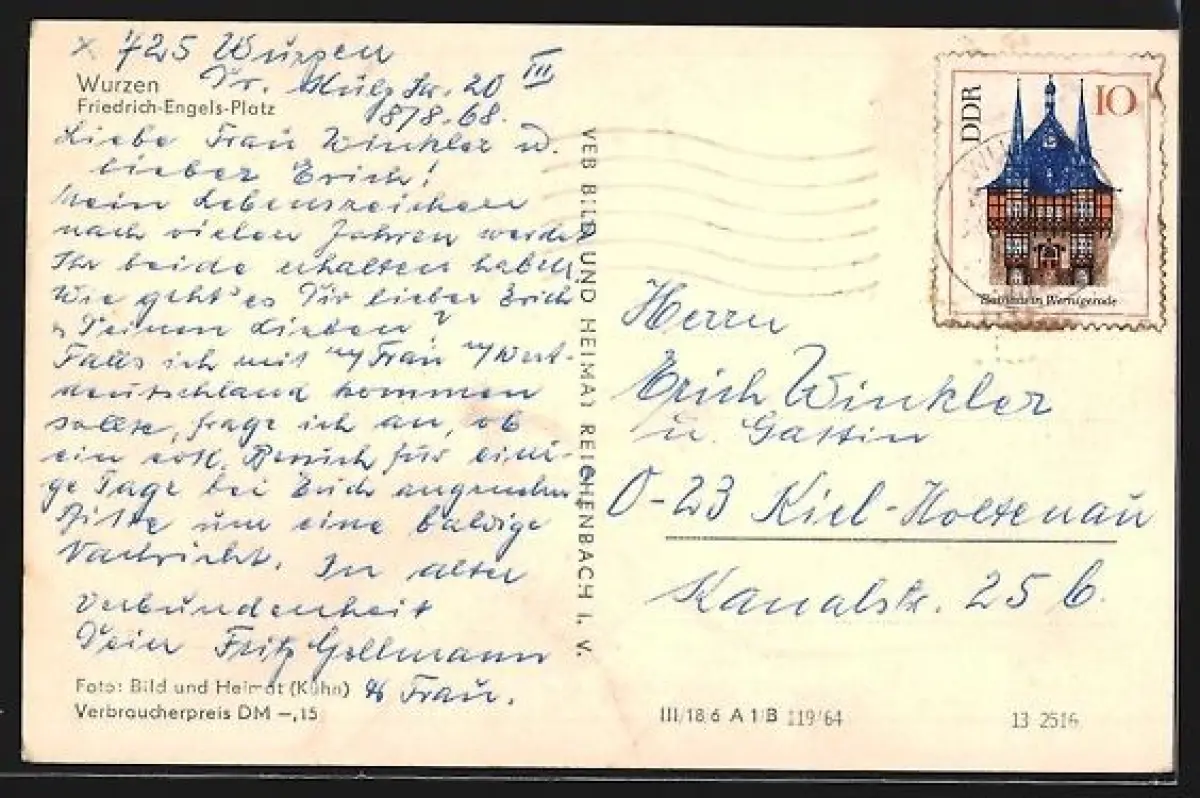 x 725 Wurzen
Wurzen
Dr. Külz Str. 20 III
Friedrich-Engels-Platz
18/8.68.
Liebe Frau Winkler u.
lieber Erich!
Mein Lebenszeichen
nach vielen Jahren werdet
Ihr beide erhalten haben.
Wie geht es Dir lieber Erich
u. Deinen Lieben?
Falls ich mit m/Frau n/West-
deutschland kommen
sollte, frage ich an, ob
ein evtl. Besuch für eini-
ge Tage bei Euch angenehm
Bitte um eine baldige
Nachricht. In alter
Verbundenheit
Dein Fritz Gollmann
& Frau.
Foto: Bild und Heimat (Kühn)
Verbraucherpreis DM –,15
VEB BILD UND HEIMAT REICHENBACH I. V.
DDR
10
Rathaus in Wernigerode
Herrn
Erich Winkler
u. Gattin
D-23 Kiel-Holtenau
Kanalstr. 25 b.
III/18/6 A 1/B 119/64
13 2516